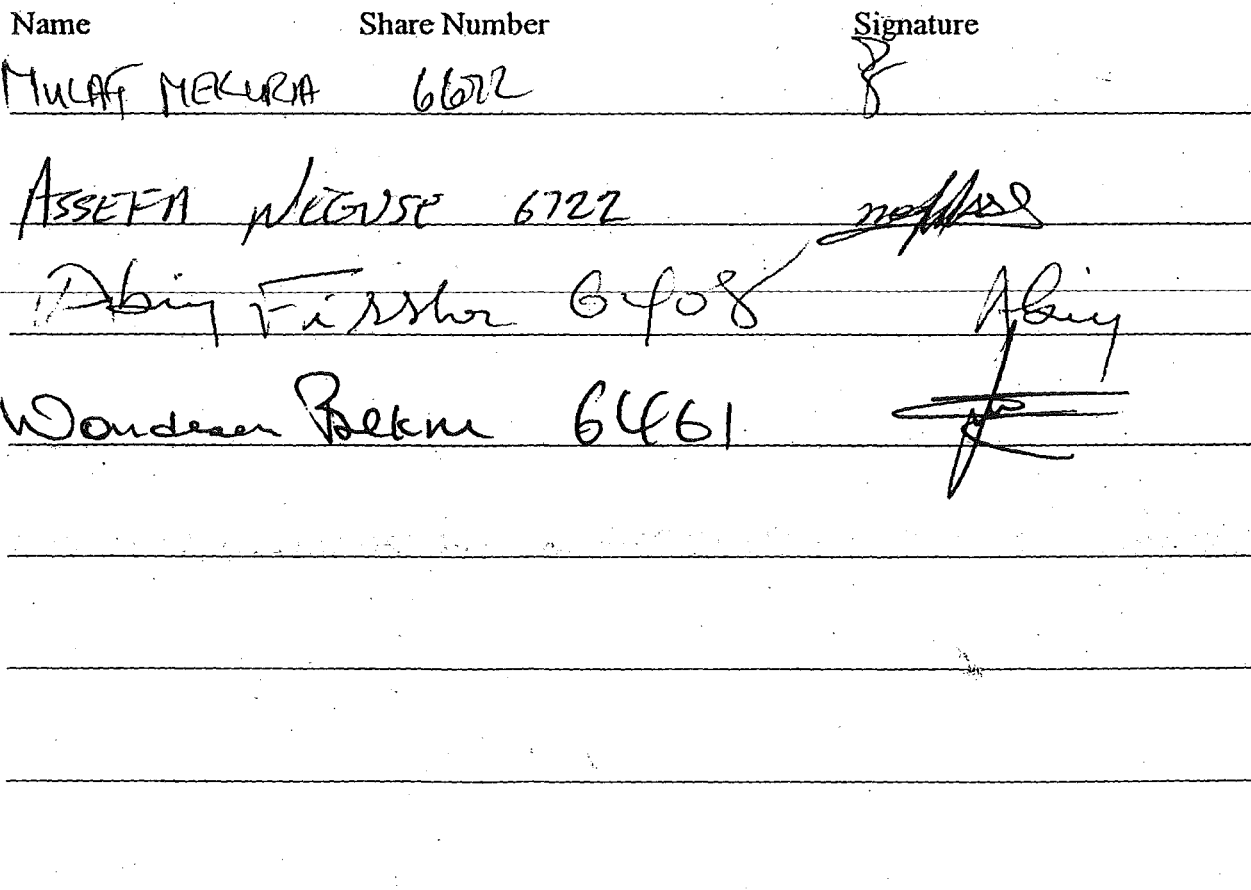 Name Share Number Signature
MULAT MEKURIA 6622
ASSEFA NEGUSE 6722
Abiy 6408 Abiy
Wondesen 6461